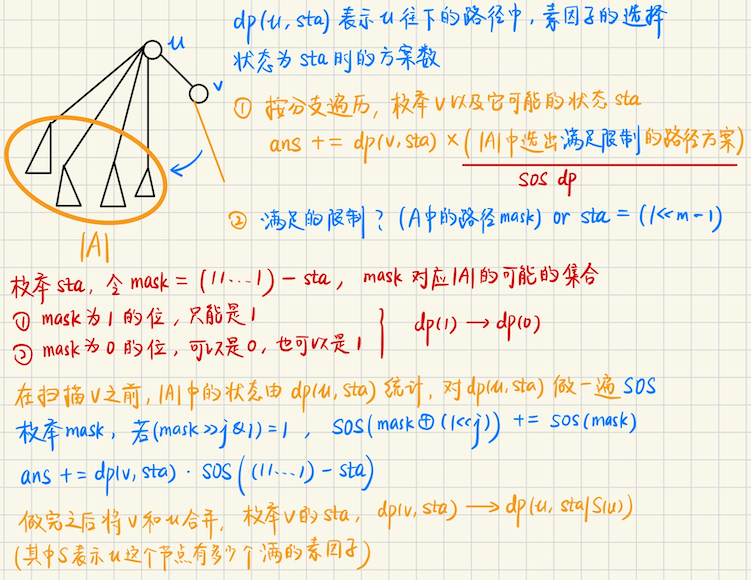 u
v
|A|
dp(u, sta) 表示 u 往下的路径中，素因子的选择
状态为 sta 时的方案数
① 按分支遍历，枚举 v 以及它可能的状态 sta
ans += dp(v, sta) × (|A|中选出满足限制的路径方案)
sos dp
② 满足的限制？(A中的路径mask) or sta = (1<<m-1)
枚举 sta，令 mask = (11...1) - sta，mask 对应|A|的可能的集合
① mask为 1 的位，只能是1
② mask为 0 的位，可以是0，也可以是1
dp(1) → dp(0)
在扫描 v 之前，|A|中的状态由 dp(u, sta) 统计，对dp(u, sta) 做一遍 SOS
枚举mask，若(mask>>j&1)=1，SOS(mask⊕(1<<j)) += SOS(mask)
ans += dp(v, sta) · SOS((11...1) - sta)
做完之后将 v 和 u 合并，枚举 v 的 sta，dp(v, sta) → dp(u, sta|S(u))
(其中S表示 u 这个节点有多少个满的素因子)